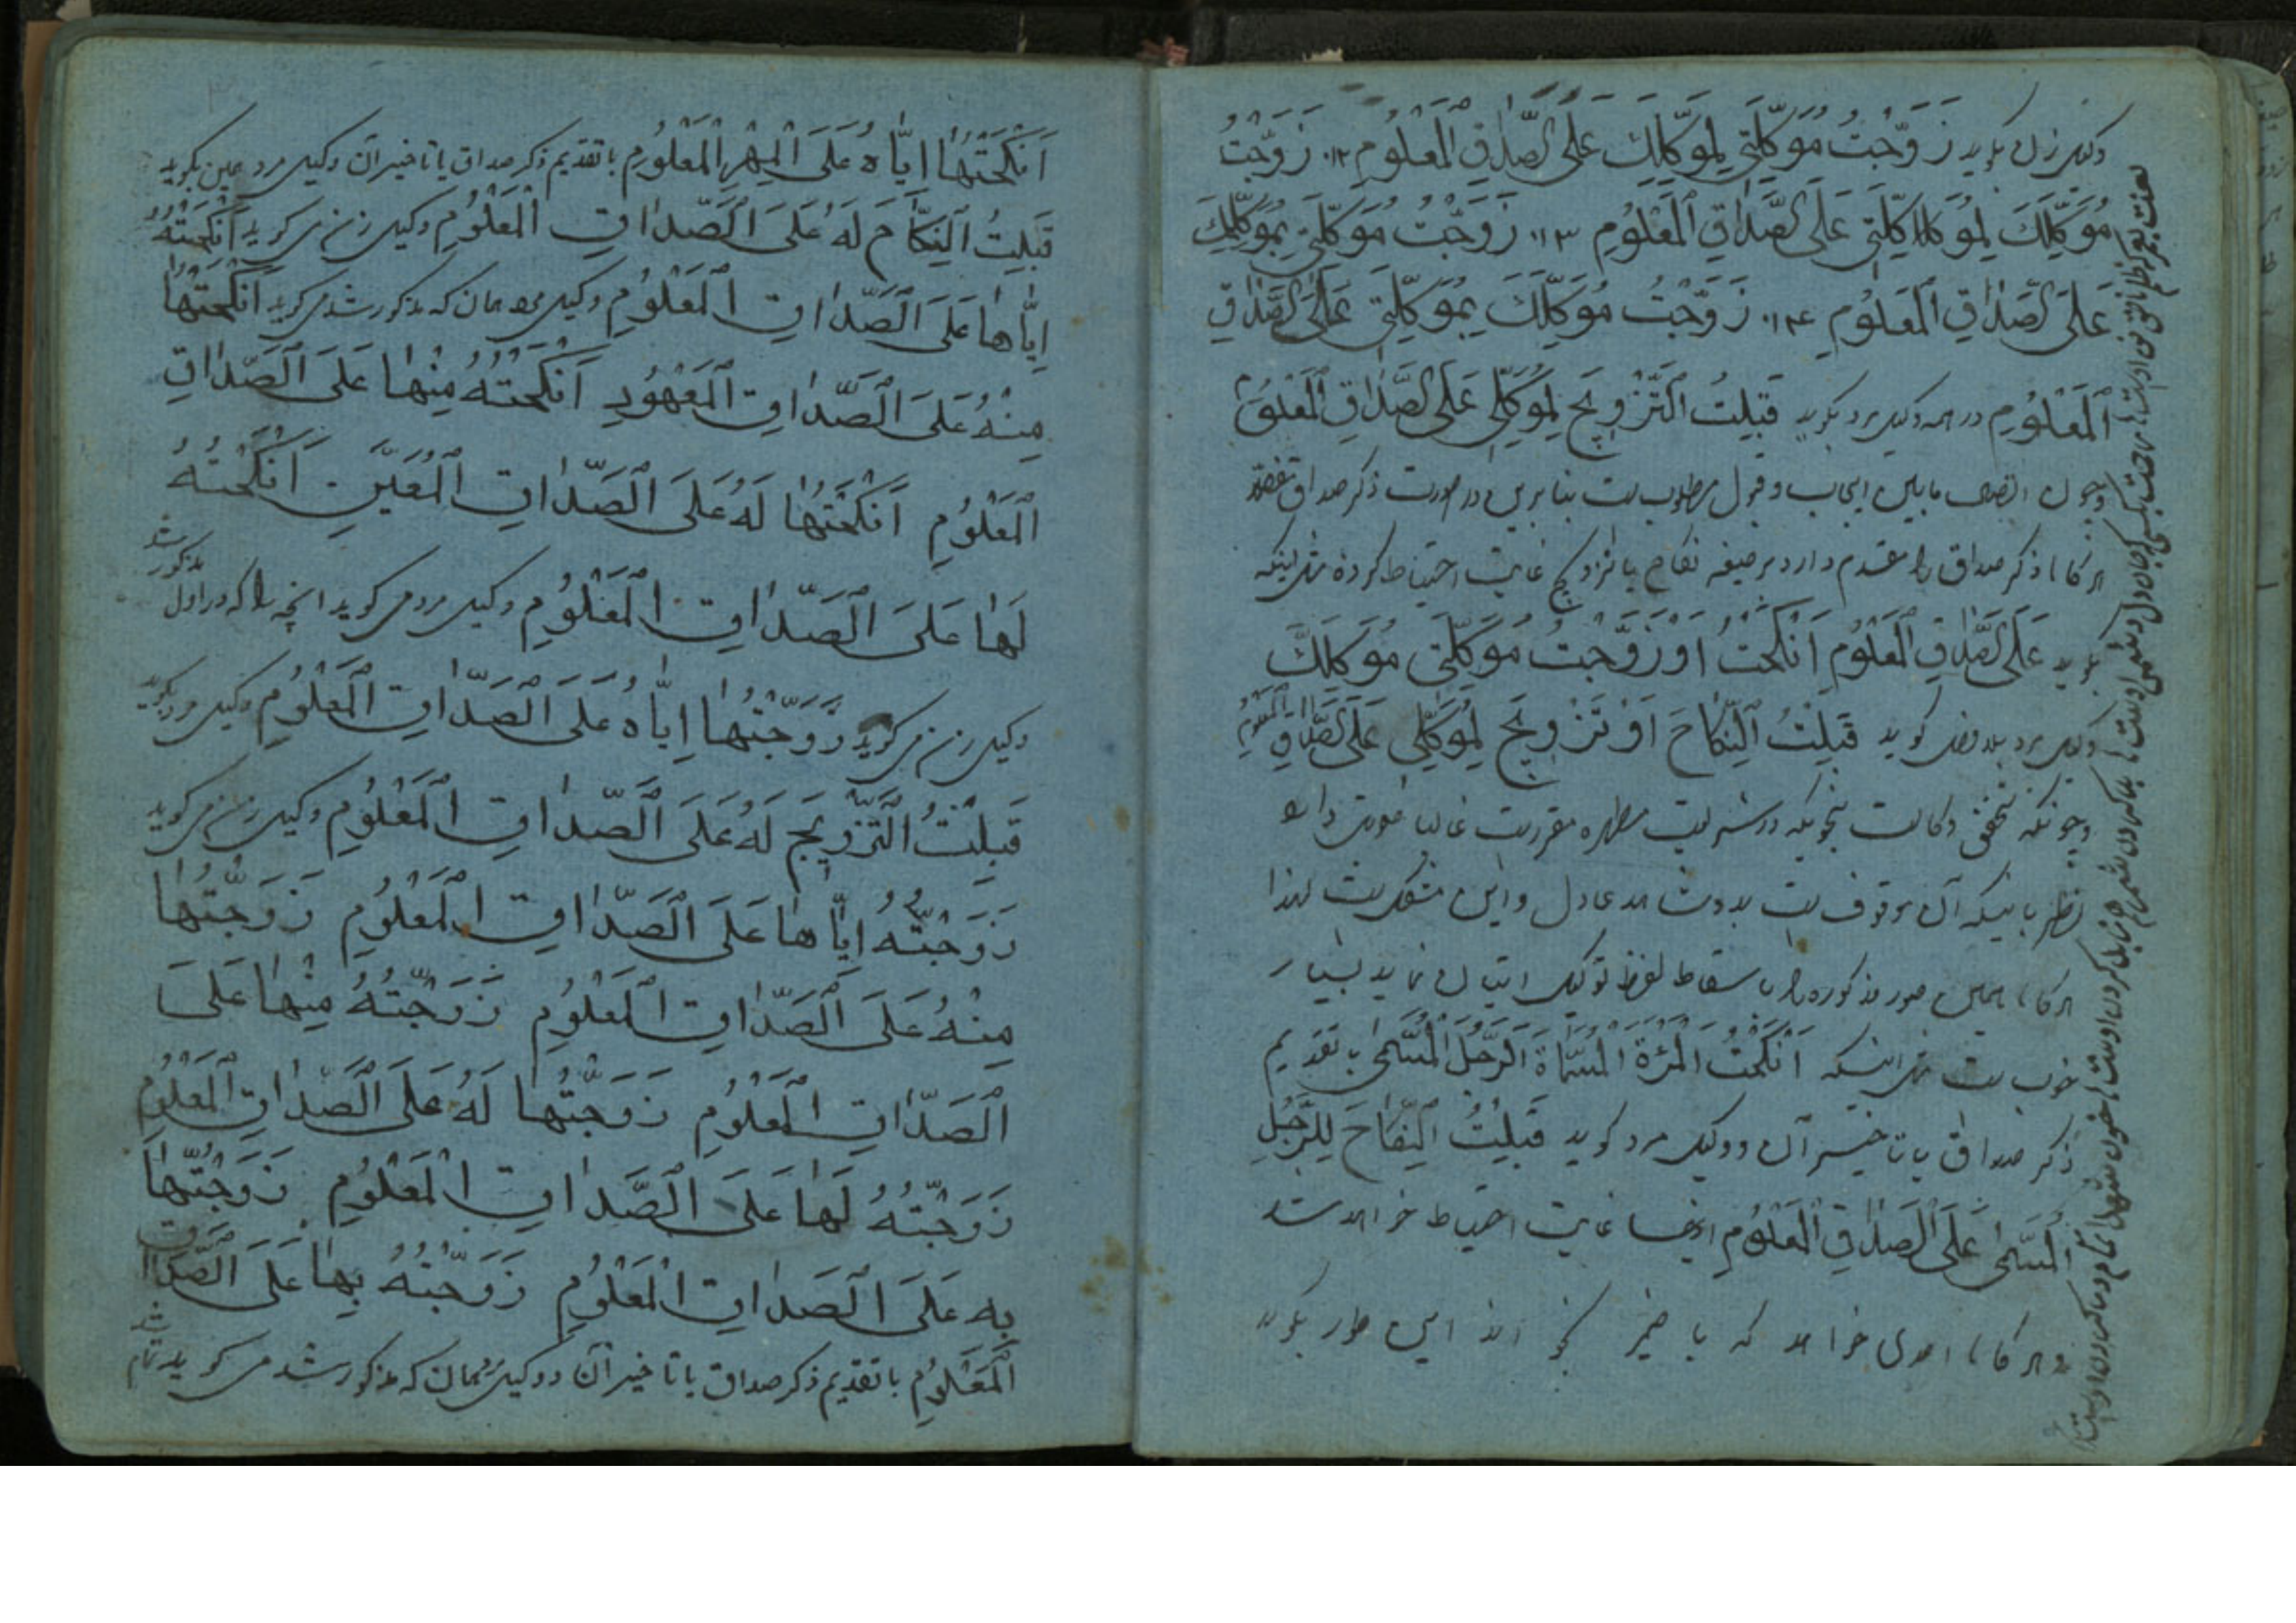 وکیل زن بگوید زَوَّجْتُ مُوَکِّلَتِي لِمُوَکِّلِكَ عَلَی الصَّدَاقِ الْمَعْلُومِ ۱۲ زَوَّجْتُ
مُوَکِّلَكَ لِمُوَکِّلَتِي عَلَی الصَّدَاقِ الْمَعْلُومِ ۱۳ زَوَّجْتُ مُوَکِّلَتِي بِمُوَکِّلِكَ
عَلَی الصَّدَاقِ الْمَعْلُومِ ۱۴ زَوَّجْتُ مُوَکِّلَكَ بِمُوَکِّلَتِي عَلَی الصَّدَاقِ
الْمَعْلُومِ در همه وکیل مرد بگوید قَبِلْتُ التَّزْوِیجَ لِمُوَکِّلِي عَلَی الصَّدَاقِ الْمَعْلُومِ
و چون اتصال مابین ایجاب و قبول مطلوبست بنابرین در صورت ذکر صداق
هرگاه ذکر صداق را مقدم دارد بر صیغه نکاح یا تزویج غایت احتیاط کرده مثل اینکه
بگوید عَلَی الصَّدَاقِ الْمَعْلُومِ اَنْکَحْتُ اَوْ زَوَّجْتُ مُوَکِّلَتِي مُوَکِّلَكَ
وکیل مرد بلا فصل گوید قَبِلْتُ النِّکَاحَ اَوْ تَزْوِیجَ لِمُوَکِّلِي عَلَی الصَّدَاقِ الْمَعْلُومِ
و چونکه تحقق وکالت بنحویکه در شریعت مطهره مقررست غالبا
نظر باینکه آن موقوفست بدو شاهد عادل و این مشکلست لهذا
هرگاه همین صور مذکوره را باسقاط لفظ توکیل اتیان نماید بسیار
خوبست مثل اینکه اَنْکَحْتُ الْمَرْئَةَ الْمُسَمَّاةَ الرَّجُلَ الْمُسَمَّی بتقدیم
ذکر صداق یا تاخیر آن و وکیل مرد گوید قَبِلْتُ النِّکَاحَ لِلرَّجُلِ
الْمُسَمَّی عَلَی الصَّدَاقِ الْمَعْلُومِ اینها غایت احتیاط خواهد شد
و هرگاه احدی خواهد که با ضمیر این طور بگوید
اَنْکَحْتُهَا اِیَّاهُ عَلَی الْمَهْرِ الْمَعْلُومِ با تقدیم ذکر صداق یا تاخیر آن وکیل مرد همین بگوید
قَبِلْتُ النِّکَاحَ لَهُ عَلَی الصَّدَاقِ الْمَعْلُومِ وکیل زن می گوید اَنْکَحْتُهُ
اِیَّاهَا عَلَی الصَّدَاقِ الْمَعْلُومِ وکیل مرد همان که مذکور شد می گوید اَنْکَحْتُهَا
مِنْهُ عَلَی الصَّدَاقِ الْمَعْهُودِ اَنْکَحْتُهُ مِنْهَا عَلَی الصَّدَاقِ
الْمَعْلُومِ اَنْکَحْتُهَا لَهُ عَلَی الصَّدَاقِ الْمُعَیَّنِ اَنْکَحْتُهُ
لَهَا عَلَی الصَّدَاقِ الْمَعْلُومِ وکیل مرد می گوید انچه را که در اول مذکور شد
وکیل زن می گوید زَوَّجْتُهَا اِیَّاهُ عَلَی الصَّدَاقِ الْمَعْلُومِ وکیل مرد بگوید
قَبِلْتُ التَّزْوِیجَ لَهُ عَلَی الصَّدَاقِ الْمَعْلُومِ وکیل زن می گوید
زَوَّجْتُهُ اِیَّاهَا عَلَی الصَّدَاقِ الْمَعْلُومِ زَوَّجْتُهَا
مِنْهُ عَلَی الصَّدَاقِ الْمَعْلُومِ زَوَّجْتُهُ مِنْهَا عَلَی
الصَّدَاقِ الْمَعْلُومِ زَوَّجْتُهَا لَهُ عَلَی الصَّدَاقِ الْمَعْلُومِ
زَوَّجْتُهُ لَهَا عَلَی الصَّدَاقِ الْمَعْلُومِ زَوَّجْتُهَا
بِهِ عَلَی الصَّدَاقِ الْمَعْلُومِ زَوَّجْتُهُ بِهَا عَلَی الصَّدَاقِ
الْمَعْلُومِ با تقدیم ذکر صداق یا تاخیر آن و وکیل مرد همان که مذکور شد می گوید تمام شد